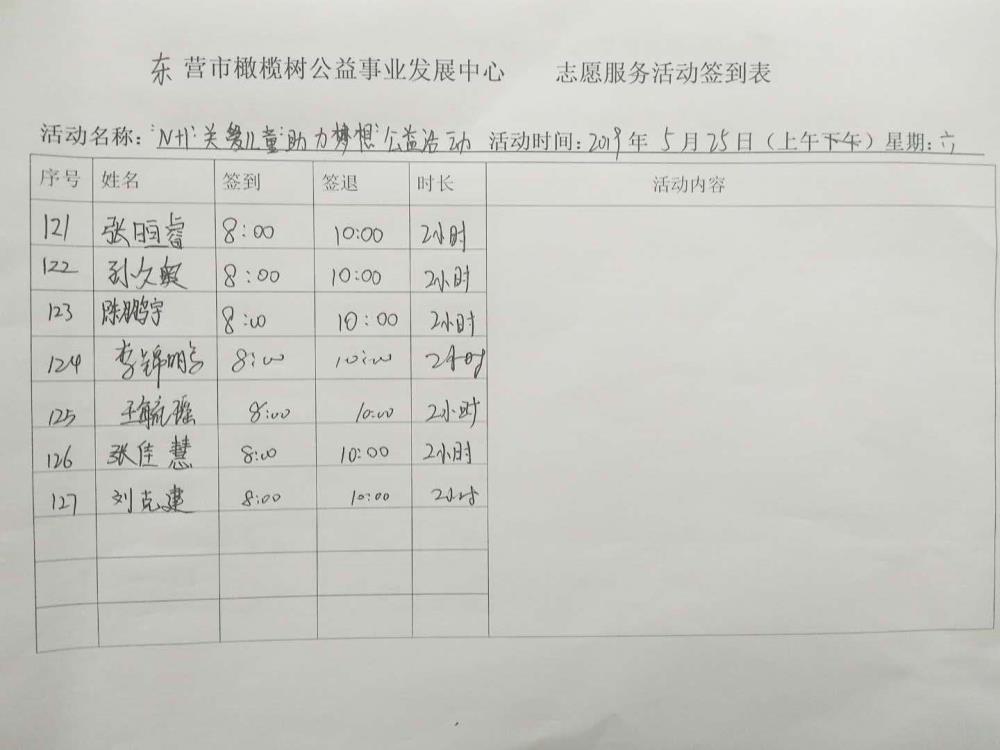 东营市橄榄树公益事业发展中心 志愿服务活动签到表
活动名称："N+1"关爱儿童"助力梦想"公益活动 活动时间：2019年5月25日（上午下午）星期：六
序号 姓名 签到 签退 时长 活动内容
121 张恒睿 8:00 10:00 2小时
122 孙文 8:00 10:00 2小时
123 陈鹏宇 8:00 10:00 2小时
124 李锦鹏 8:00 10:00 2小时
125 王毓瑶 8:00 10:00 2小时
126 张佳慧 8:00 10:00 2小时
127 刘克建 8:00 10:00 2小时